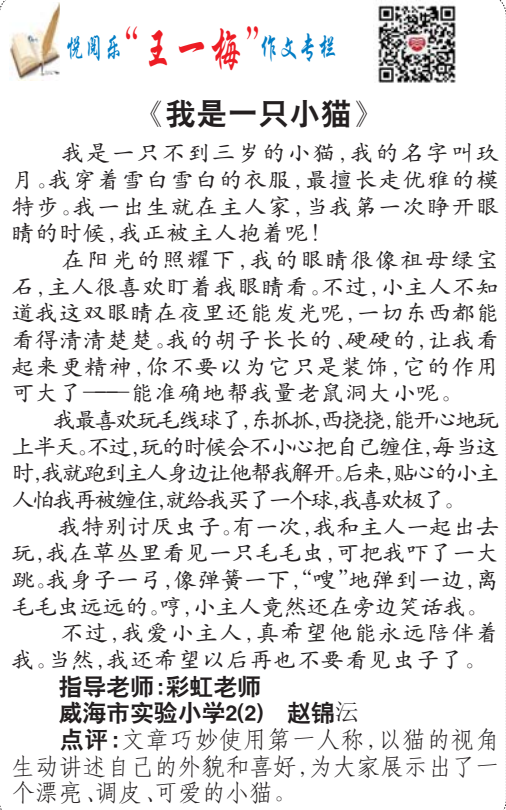 悦阅乐“王一梅”作文专栏
《我是一只小猫》
我是一只不到三岁的小猫,我的名字叫玖
月。我穿着雪白雪白的衣服,最擅长走优雅的模
特步。我一出生就在主人家,当我第一次睁开眼
睛的时候,我正被主人抱着呢!
在阳光的照耀下,我的眼睛很像祖母绿宝
石,主人很喜欢盯着我眼睛看。不过,小主人不知
道我这双眼睛在夜里还能发光呢,一切东西都能
看得清清楚楚。我的胡子长长的、硬硬的,让我看
起来更精神,你不要以为它只是装饰,它的作用
可大了——能准确地帮我量老鼠洞大小呢。
我最喜欢玩毛线球了,东抓抓,西挠挠,能开心地玩
上半天。不过,玩的时候会不小心把自己缠住,每当这
时,我就跑到主人身边让他帮我解开。后来,贴心的小主
人怕我再被缠住,就给我买了一个球,我喜欢极了。
我特别讨厌虫子。有一次,我和主人一起出去
玩,我在草丛里看见一只毛毛虫,可把我吓了一大
跳。我身子一弓,像弹簧一下,“嗖”地弹到一边,离
毛毛虫远远的。哼,小主人竟然还在旁边笑话我。
不过,我爱小主人,真希望他能永远陪伴着
我。当然,我还希望以后再也不要看见虫子了。
指导老师:彩虹老师
威海市实验小学2(2) 赵锦沄
点评:文章巧妙使用第一人称,以猫的视角
生动讲述自己的外貌和喜好,为大家展示出了一
个漂亮、调皮、可爱的小猫。